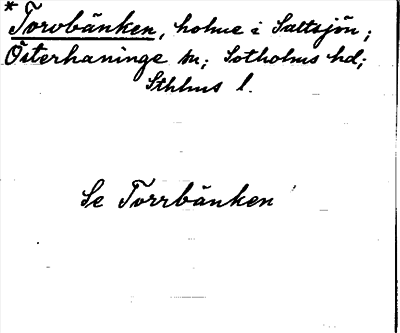 *Torvbänken, holme i Saltsjön;
Österhaninge sn; Sotholms hd;
Sthlms l.
Se Torrbänken